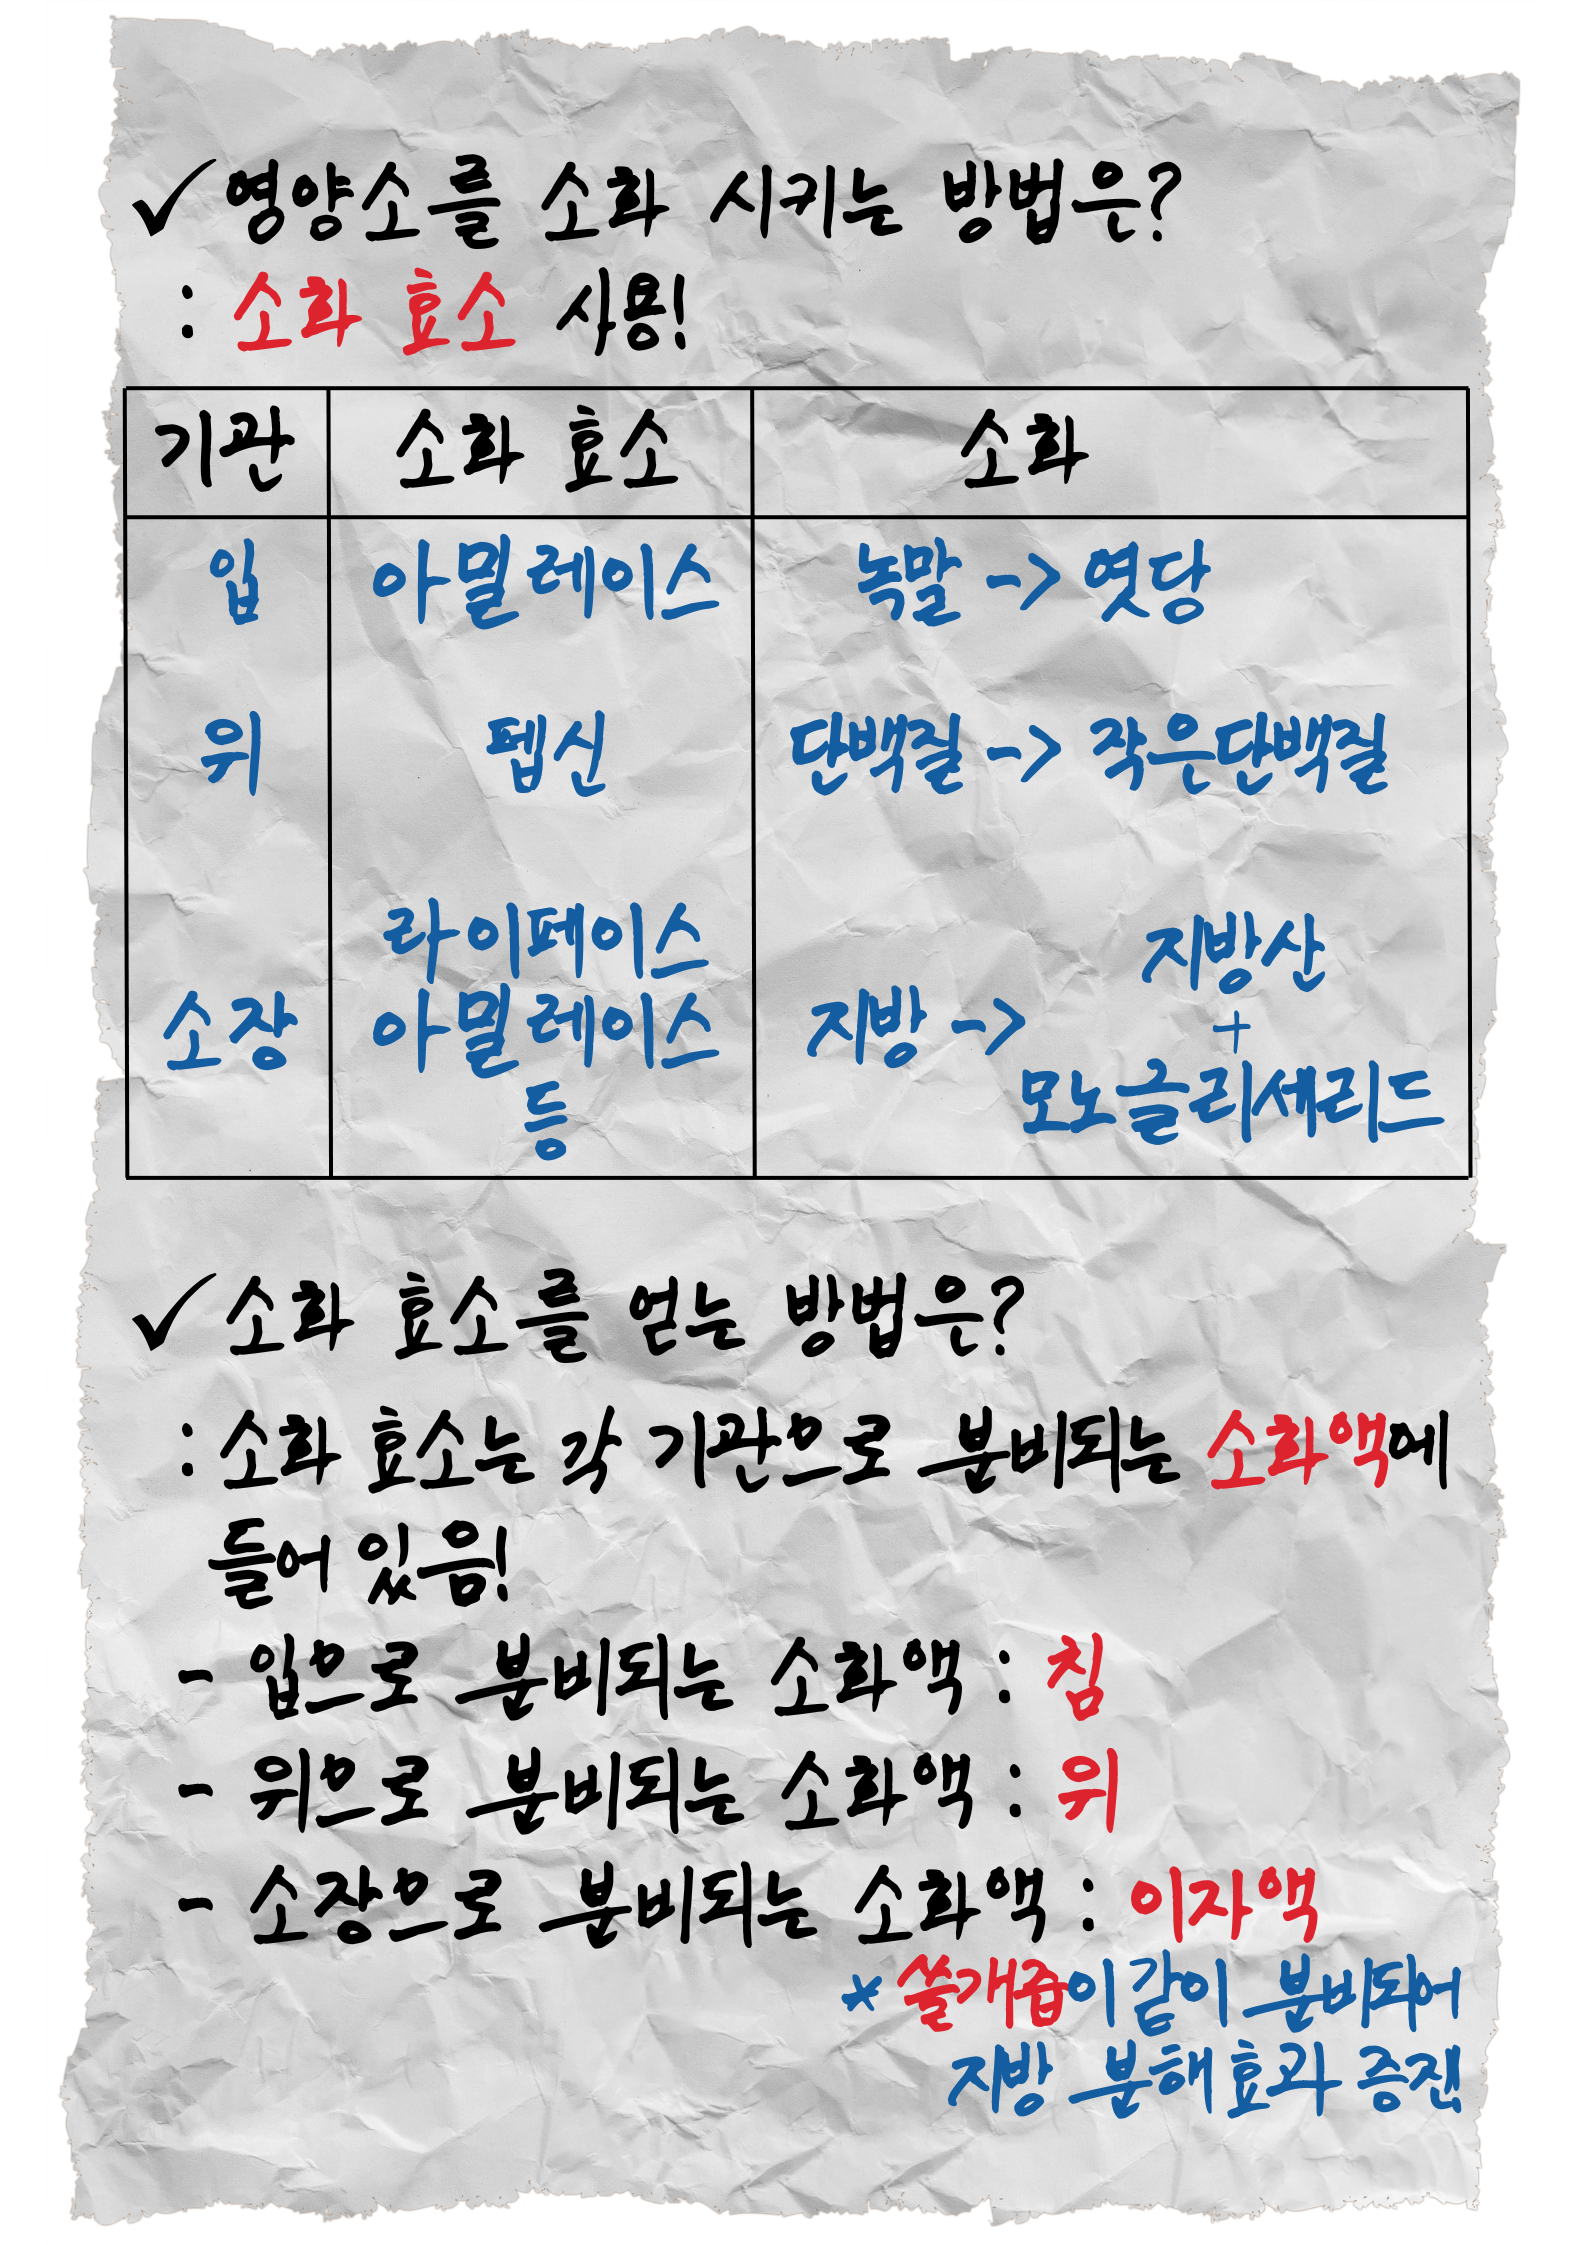 ✓ 영양소를 소화 시키는 방법은?
: 소화 효소 사용!
기관 소화 효소 소화
입 아밀레이스 녹말 -> 엿당
위 펩신 단백질 -> 작은단백질
라이페이스
소장 아밀레이스
등
지방 ->
지방산
+
모노글리세리드
✓ 소화 효소를 얻는 방법은?
: 소화 효소는 각 기관으로 분비되는 소화액에
들어 있음!
- 입으로 분비되는 소화액 : 침
- 위으로 분비되는 소화액 : 위
- 소장으로 분비되는 소화액 : 이자액
* 쓸개즙이 같이 분비되어
지방 분해 효과 증진!